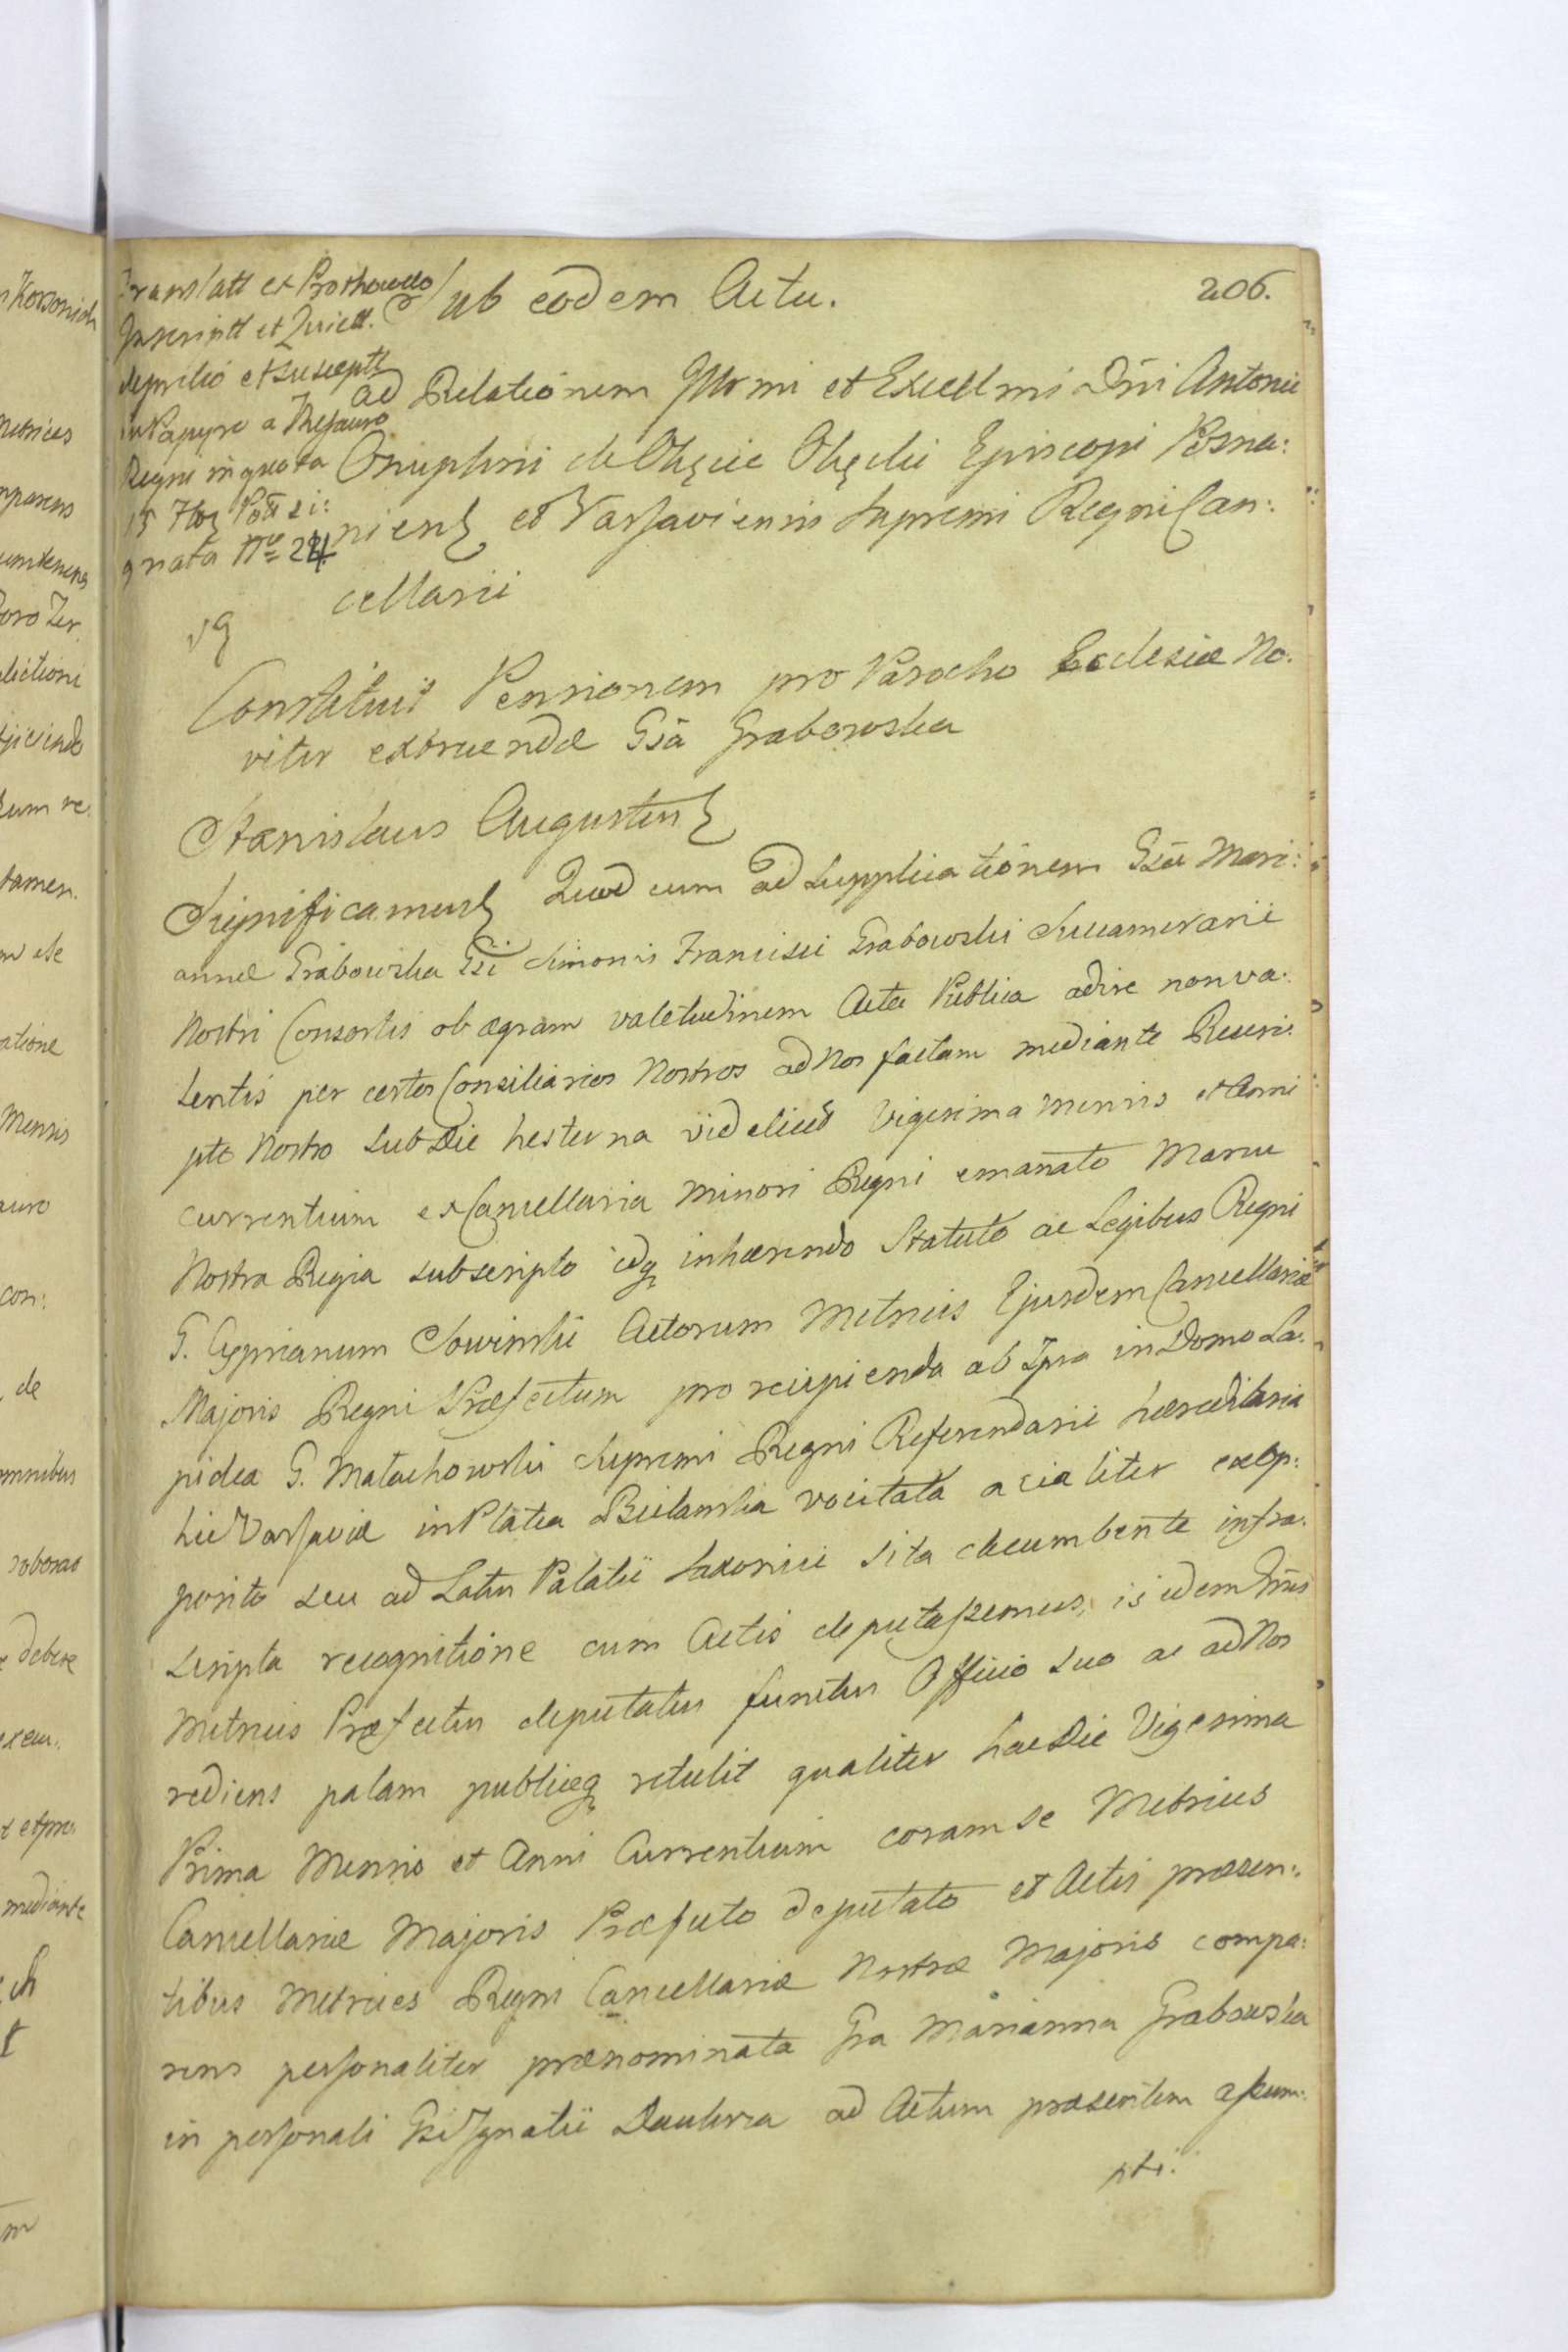 206.
Translatt ex Prothocollo
Inscriptt et Quiett.
deprelio et susceptt
in Papyro a Thesauro
Regni in quota
15 Flor Poll si:
gnata Nro 24
Sub eodem Actu.
ad Relationem Illrmi et Excellmi Dñi Antonii
Onuphrii de Okęcie Okęcki Episcopi Posna:
niens et Varsaviensis Supremi Regni Can:
cellarii
Constituit Pensionem pro Parocho Ecclesiæ No:
viter extruendæ Gsã Grabowska
Stanislaus Augustus
Significamus Quod cum ad Supplicationem Gsæ Mari:
annæ Grabowska Gsi Simonis Francisci Grabowski Succamerarii
Nostri Consortis ob ægram valetudinem Acta Publica adire non va:
lentis per certos Consiliarios Nostros ad Nos factam mediante Rescri:
pto Nostro sub Die hesterna videlicet Vigesima Mensis et Anni
currentium ex Cancellaria Minori Regni emanato Manu
Nostra Regia subscripto idq inhærendo Statuto ac Legibus Regni
G. Cyprianum Sowinski Actorum Metrices Ejusdem Cancellariæ
Majoris Regni Præfectum pro recipienda ab Ipsa in Domo La:
pidea G. Małachowski Supremi Regni Referendarii hæreditaria
hic Varsaviæ in Platea Bielanska vocitata acialiter exop:
posito seu ad Latus Palatii Saxonici sita decumbente infra:
scripta recognitione cum Actis deputassemus, isidem Gñus
Metrices Præfectus deputatus functus Officio suo ac ad Nos
rediens palam publiceq retulit qualiter hac Die Vigesima
Prima Mensis et Anni Currentium coram se Metrices
Cancellariæ Majoris Præfecto deputato et Actis præsen:
tibus Metrices Regni Cancellariæ Nostræ Majoris compa:
rens personaliter prænominata Gsa Marianna Grabowska
in personali Gsi Ignatii ad Actum præsentem assum:
pti.